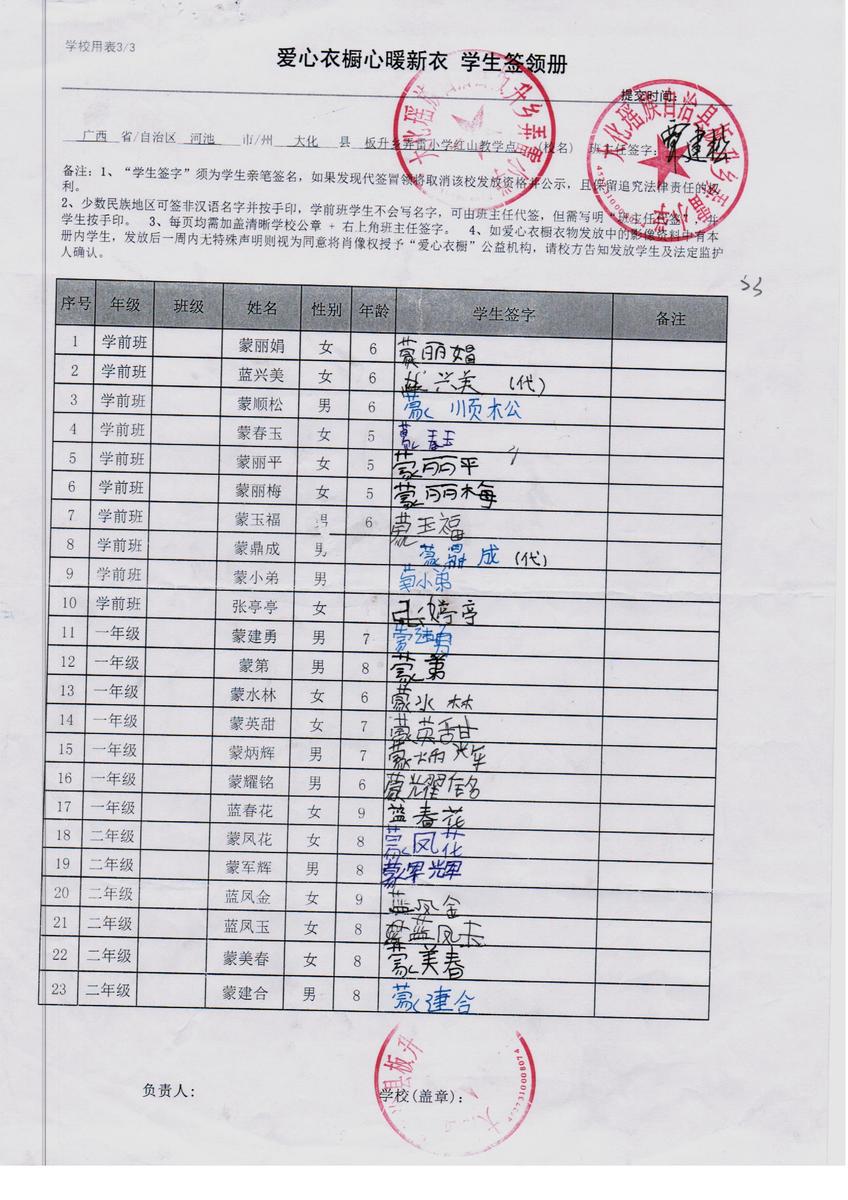 学校用表3/3
爱心衣橱心暖新衣 学生签领册
提交时间:
广西 省/自治区 河池 市/州 大化 县 板升乡弄雷小学红山教学点 (校名) 班主任签字:
备注：1、“学生签字”须为学生亲笔签名，如果发现代签冒领将取消该校发放资格并公示，且保留追究法律责任的权
利。
2、少数民族地区可签非汉语名字并按手印，学前班学生不会写名字，可由班主任代签，但需写明“班主任代签”，并
学生按手印。 3、每页均需加盖清晰学校公章 + 右上角班主任签字。 4、如爱心衣橱衣物发放中的影像资料中有本
册内学生，发放后一周内无特殊声明则视为同意将肖像权授予“爱心衣橱”公益机构，请校方告知发放学生及法定监护
人确认。
序号 年级 班级 姓名 性别 年龄 学生签字 备注
1 学前班 蒙丽娟 女 6 蒙丽娟
2 学前班 蓝兴美 女 6 兴美 (代)
3 学前班 蒙顺松 男 6 蒙顺松
4 学前班 蒙春玉 女 5 蒙春玉
5 学前班 蒙丽平 女 5 蒙丽平
6 学前班 蒙丽梅 女 5 蒙丽梅
7 学前班 蒙玉福 男 6 蒙玉福
8 学前班 蒙鼎成 男 蒙鼎成 (代)
9 学前班 蒙小弟 男 蒙小弟
10 学前班 张亭亭 女 张婷亭
11 一年级 蒙建勇 男 7 蒙建勇
12 一年级 蒙第 男 8 蒙第
13 一年级 蒙水林 女 6 蒙水林
14 一年级 蒙英甜 女 7 蒙英甜
15 一年级 蒙炳辉 男 7 蒙炳辉
16 一年级 蒙耀铭 男 6 蒙耀铭
17 一年级 蓝春花 女 9 蓝春花
18 二年级 蒙凤花 女 8 蒙凤花
19 二年级 蒙军辉 男 8 蒙军辉
20 二年级 蓝凤金 女 9 蓝凤金
21 二年级 蓝凤玉 女 8 蓝凤玉
22 二年级 蒙美春 女 8 蒙美春
23 二年级 蒙建合 男 8 蒙建合
负责人: 学校(盖章):